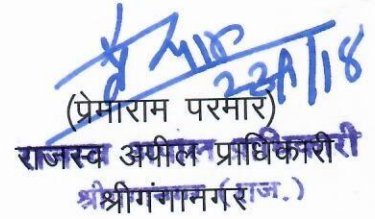 (प्रेमाराम परमार)
राजस्व अपील प्राधिकारी
श्रीगंगानगर (राज.)